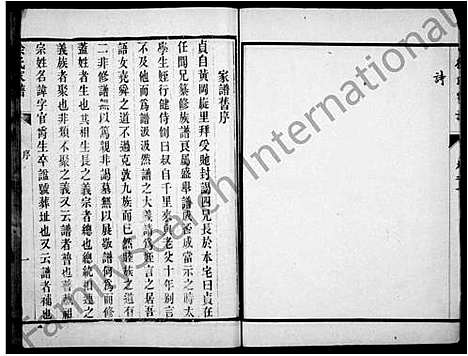 詩
家譜舊序
貞自黄岡旋里拜受馳封謁四兄長於本宅曰貞在
任得兄纂修族譜良屬盛舉譜成否余示之時太
學生姪行健侍側曰叔自千里來與老父十年别言
及不及他而爲譜汲汲然譜之大義請爲姪言之居吾
語女堯舜之道不過克敦九族而已然睦族之道
二非修譜無以篤親非錫墓無以展敬譜何爲而修
蓋姓者生也其相生長之義宗者總也總相連之
義族者聚也非類不聚之義又云譜者普也普載祖
宗姓名諱字官爵生卒諡號葬址也又云譜者補也
氏家譜
序
一
FamilySearch International